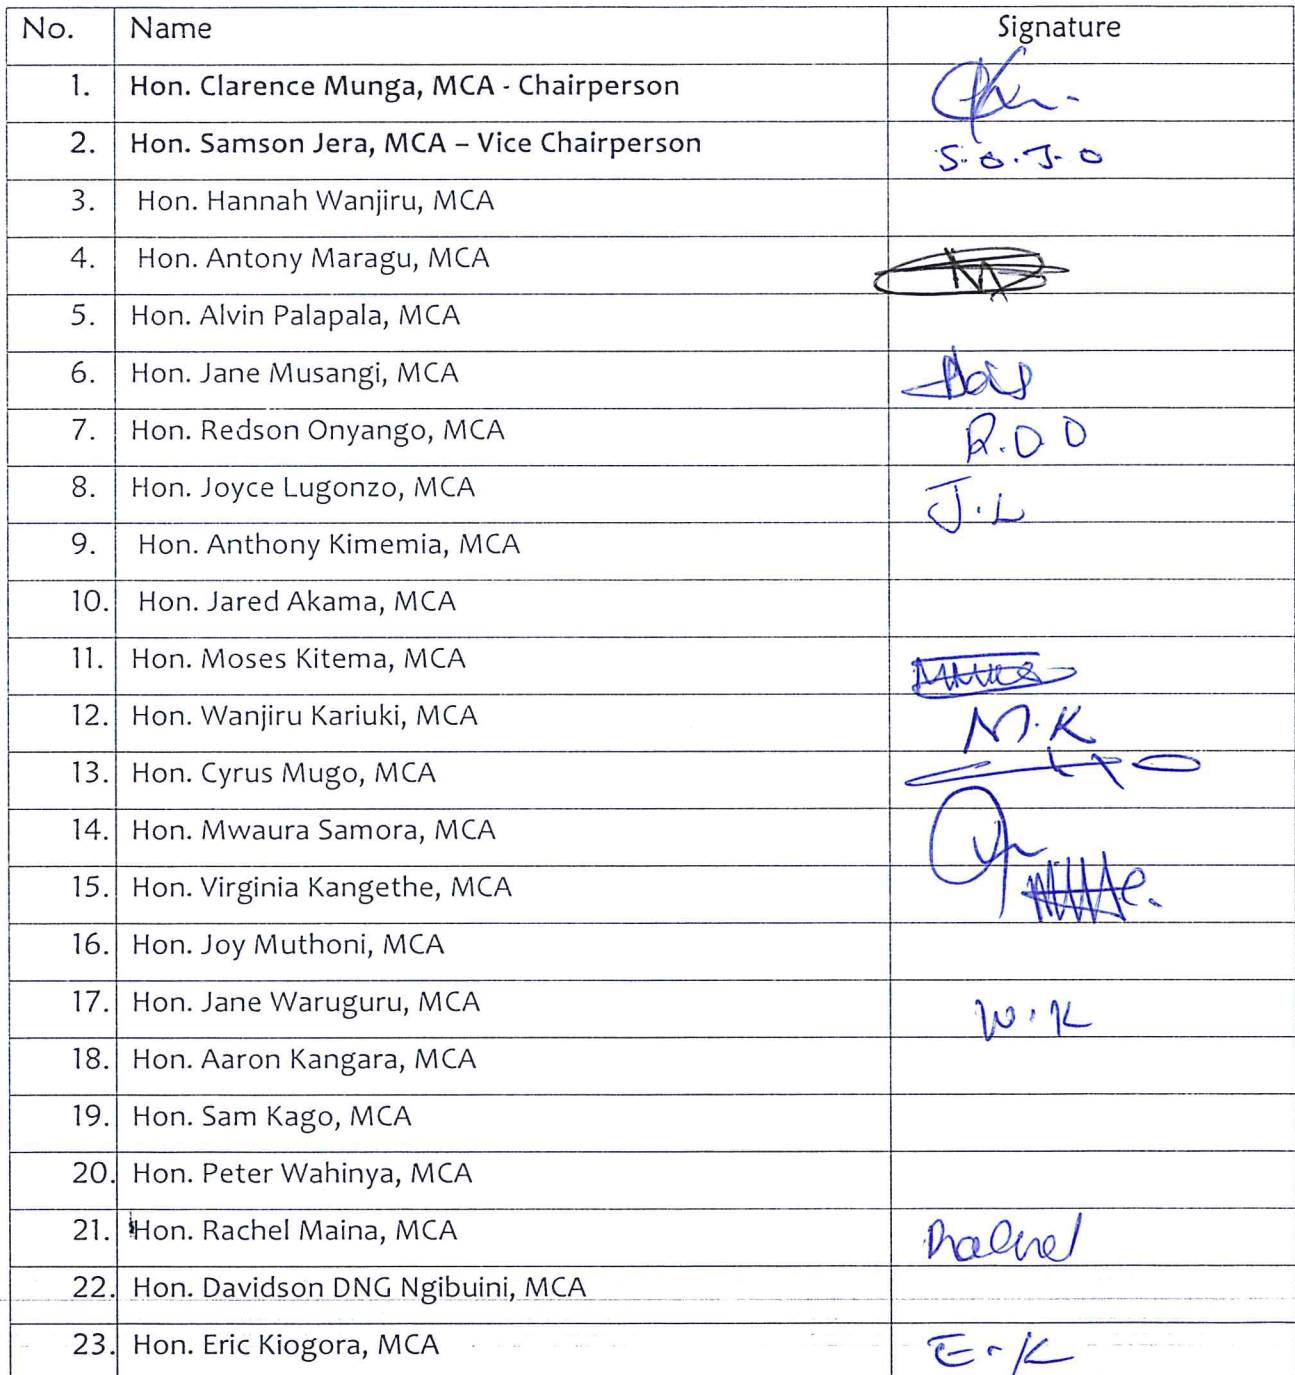 No. Name Signature
1. Hon. Clarence Munga, MCA - Chairperson
2. Hon. Samson Jera, MCA – Vice Chairperson S.O.J.O
3. Hon. Hannah Wanjiru, MCA
4. Hon. Antony Maragu, MCA
5. Hon. Alvin Palapala, MCA
6. Hon. Jane Musangi, MCA
7. Hon. Redson Onyango, MCA R.O.O
8. Hon. Joyce Lugonzo, MCA J.L
9. Hon. Anthony Kimemia, MCA
10. Hon. Jared Akama, MCA
11. Hon. Moses Kitema, MCA
12. Hon. Wanjiru Kariuki, MCA M.K
13. Hon. Cyrus Mugo, MCA
14. Hon. Mwaura Samora, MCA
15. Hon. Virginia Kangethe, MCA
16. Hon. Joy Muthoni, MCA
17. Hon. Jane Waruguru, MCA W.K
18. Hon. Aaron Kangara, MCA
19. Hon. Sam Kago, MCA
20. Hon. Peter Wahinya, MCA
21. Hon. Rachel Maina, MCA Rachel
22. Hon. Davidson DNG Ngibuini, MCA
23. Hon. Eric Kiogora, MCA E.K